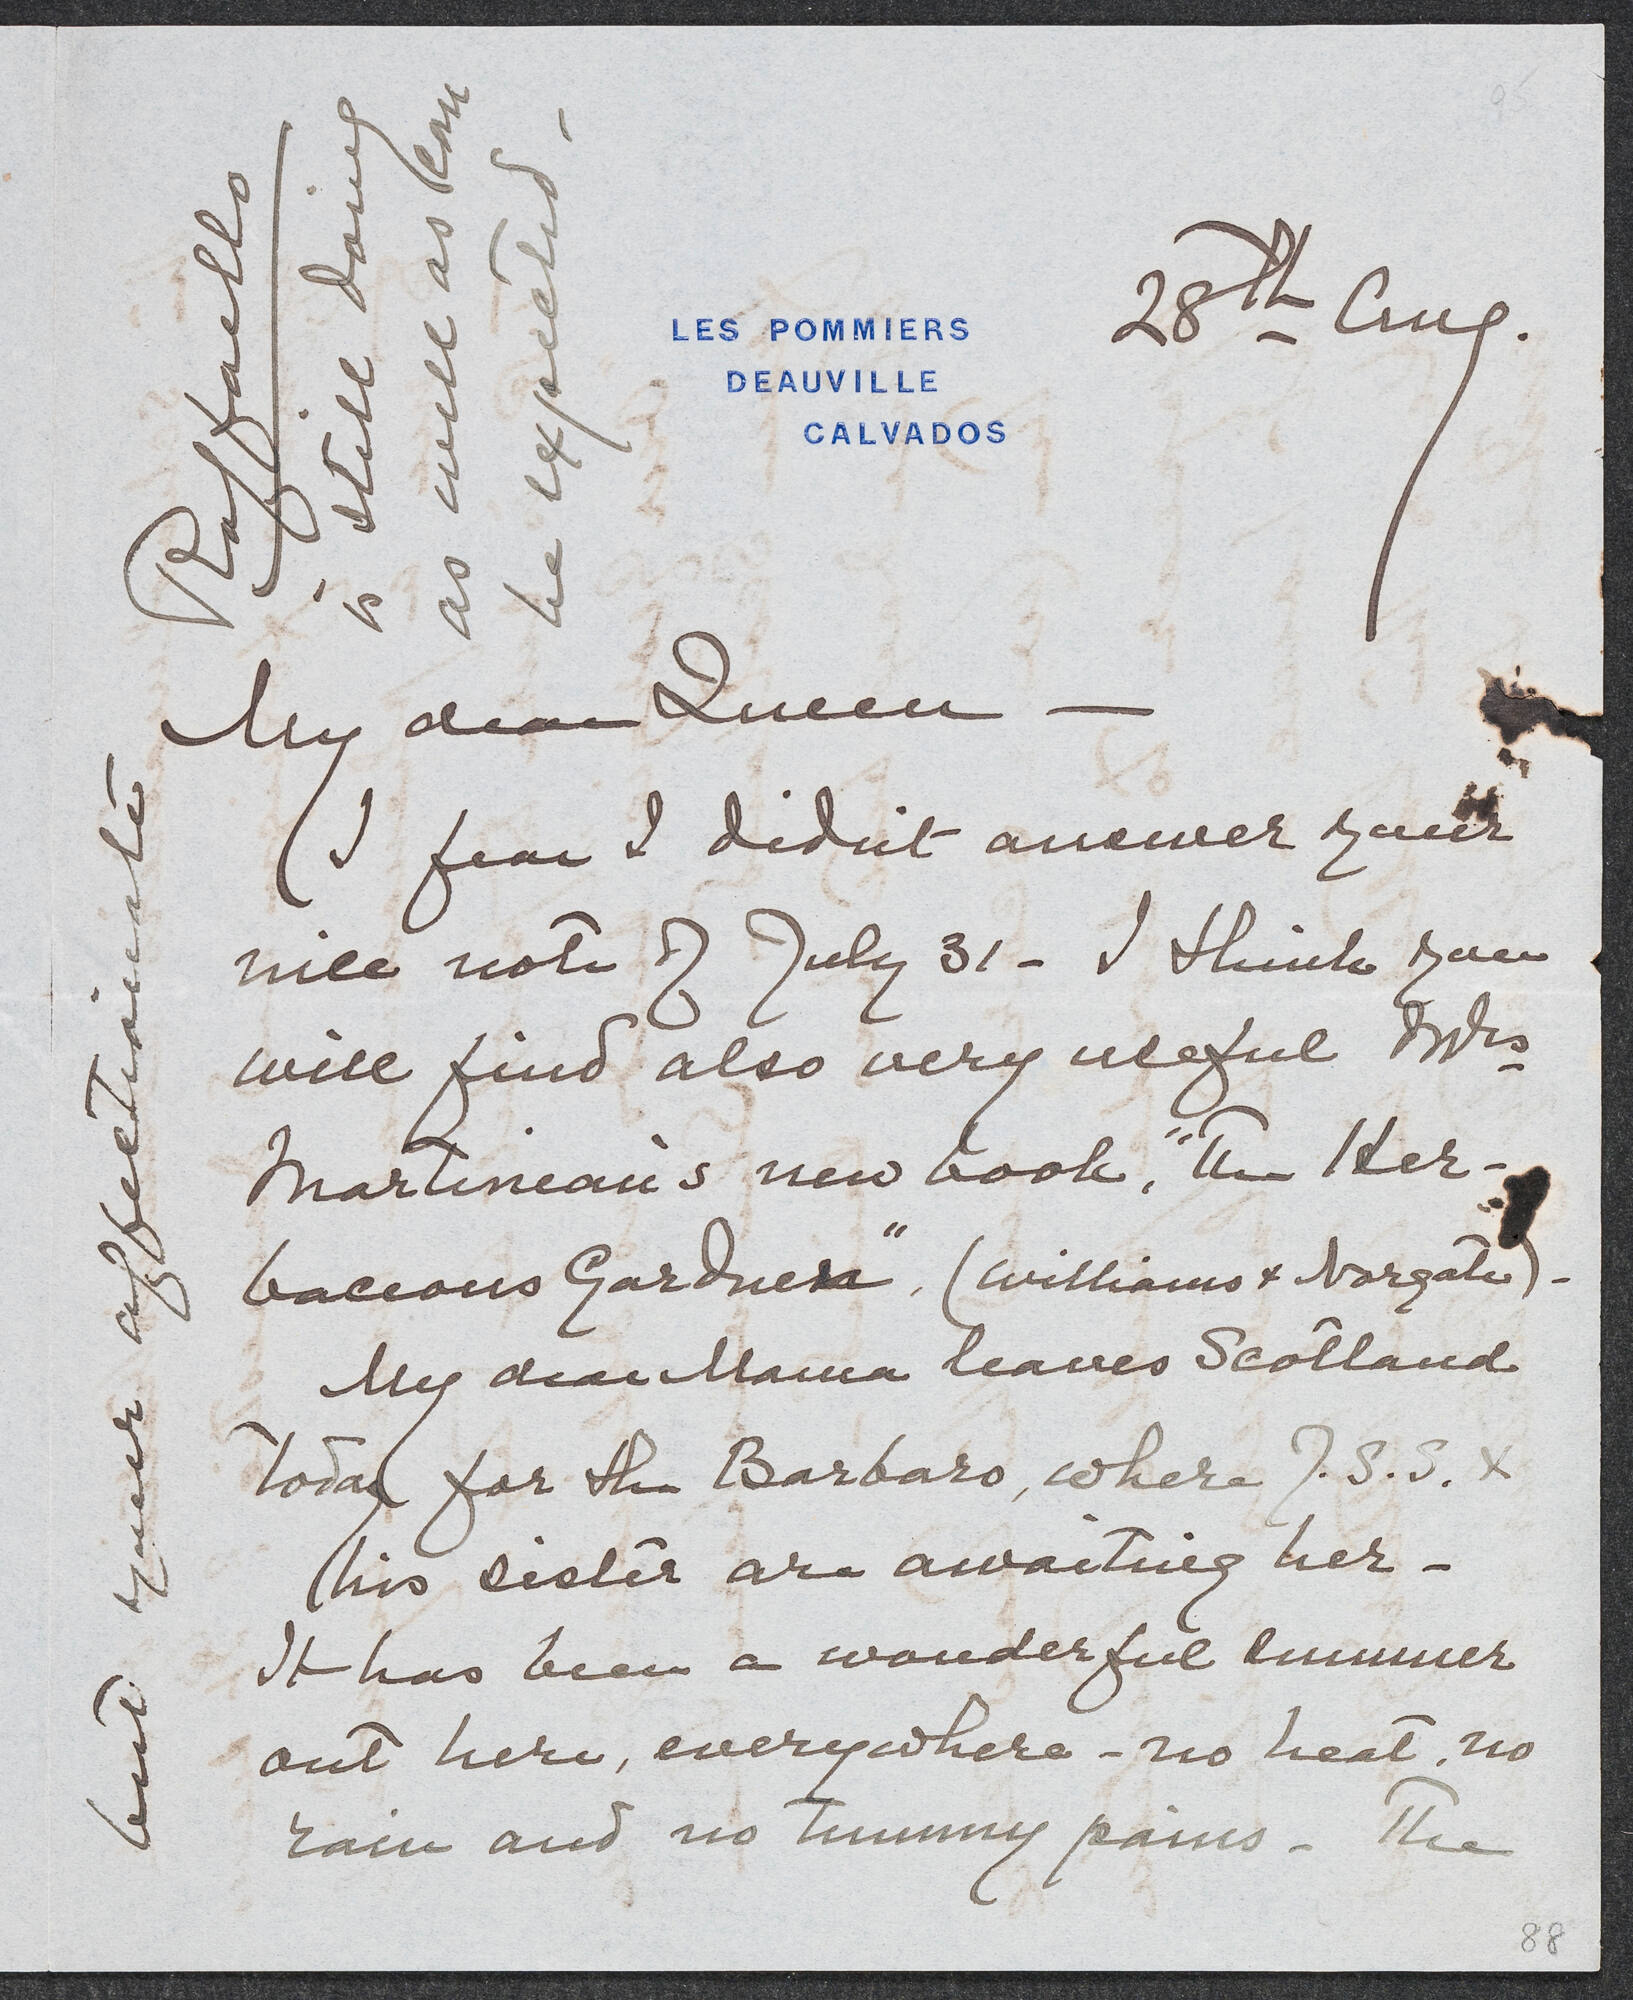 95
LES POMMIERS
DEAUVILLE
CALVADOS
28th Aug.
My dear Queen —
I fear I didn't answer your
nice note of July 31 - I think you
will find also very useful Mrs
Martineau's new book, "The Her-
baceous Garden", (Williams & Norgate) -
My dear Mama leaves Scotland
today for the Barbaro, where J.S.S. &
his sister are awaiting her -
It has been a wonderful summer
out here, everywhere - no heat, no
rain and no tummy pains - The
but your affectionate
Raffaello
is still doing
as well as can
be expected -
88